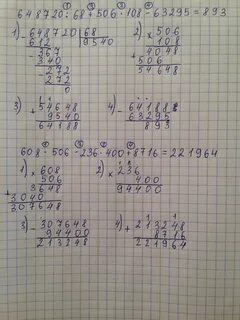 648720:68+506·108-63295=893
1) 648720 | 68 2) ×506
-612 | 9540 108
-367 + 4048
340 506
-272 54648
272
0
3) + 54648 4) - 64188
9540 63295
64188 893
608·506-236·400+8716=221964
1) ×608 2) ×236
506 400
3648 94400
+3040
307648
3) - 307648 4) + 213248
94400 8716
213248 221964